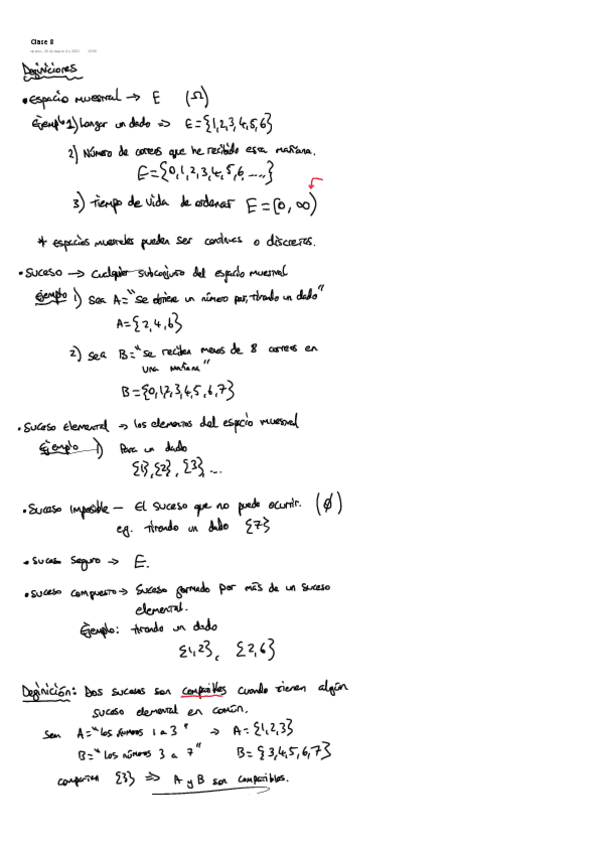 Clase 8
Definiciones
• Espacio muestral → E (Ω)
Ejemplo 1) Lanzar un dado => E={1,2,3,4,5,6}
2) Número de correos que he recibido esa mañana.
E={0,1,2,3,4,5,6,....}
3) tiempo de vida de ordenar E=[0,∞)
* espacios muestrales pueden ser continuos o discretos.
• Suceso → Cualquier subconjunto del espacio muestral
Ejemplo 1) Sea A="Se obtiene un número par, tirando un dado"
A={2,4,6}
2) Sea B="Se reciben menos de 8 correos en
una mañana"
B={0,1,2,3,4,5,6,7}
• Suceso Elemental → los elementos del espacio muestral
Ejemplo 1) Para un dado
{1},{2},{3},...
• Suceso Imposible — El suceso que no puede ocurrir. (∅)
eg. tirando un dado {7}
• Suceso Seguro → E.
• Suceso compuesto → Suceso formado por más de un suceso
elemental.
Ejemplo: tirando un dado
{1,2}, {2,6}
Definición: Dos sucesos son compatibles cuando tienen algún
suceso elemental en común.
Sea A="los números 1 a 3" → A={1,2,3}
B="los números 3 a 7" B={3,4,5,6,7}
comparten {3} => A y B son compatibles.